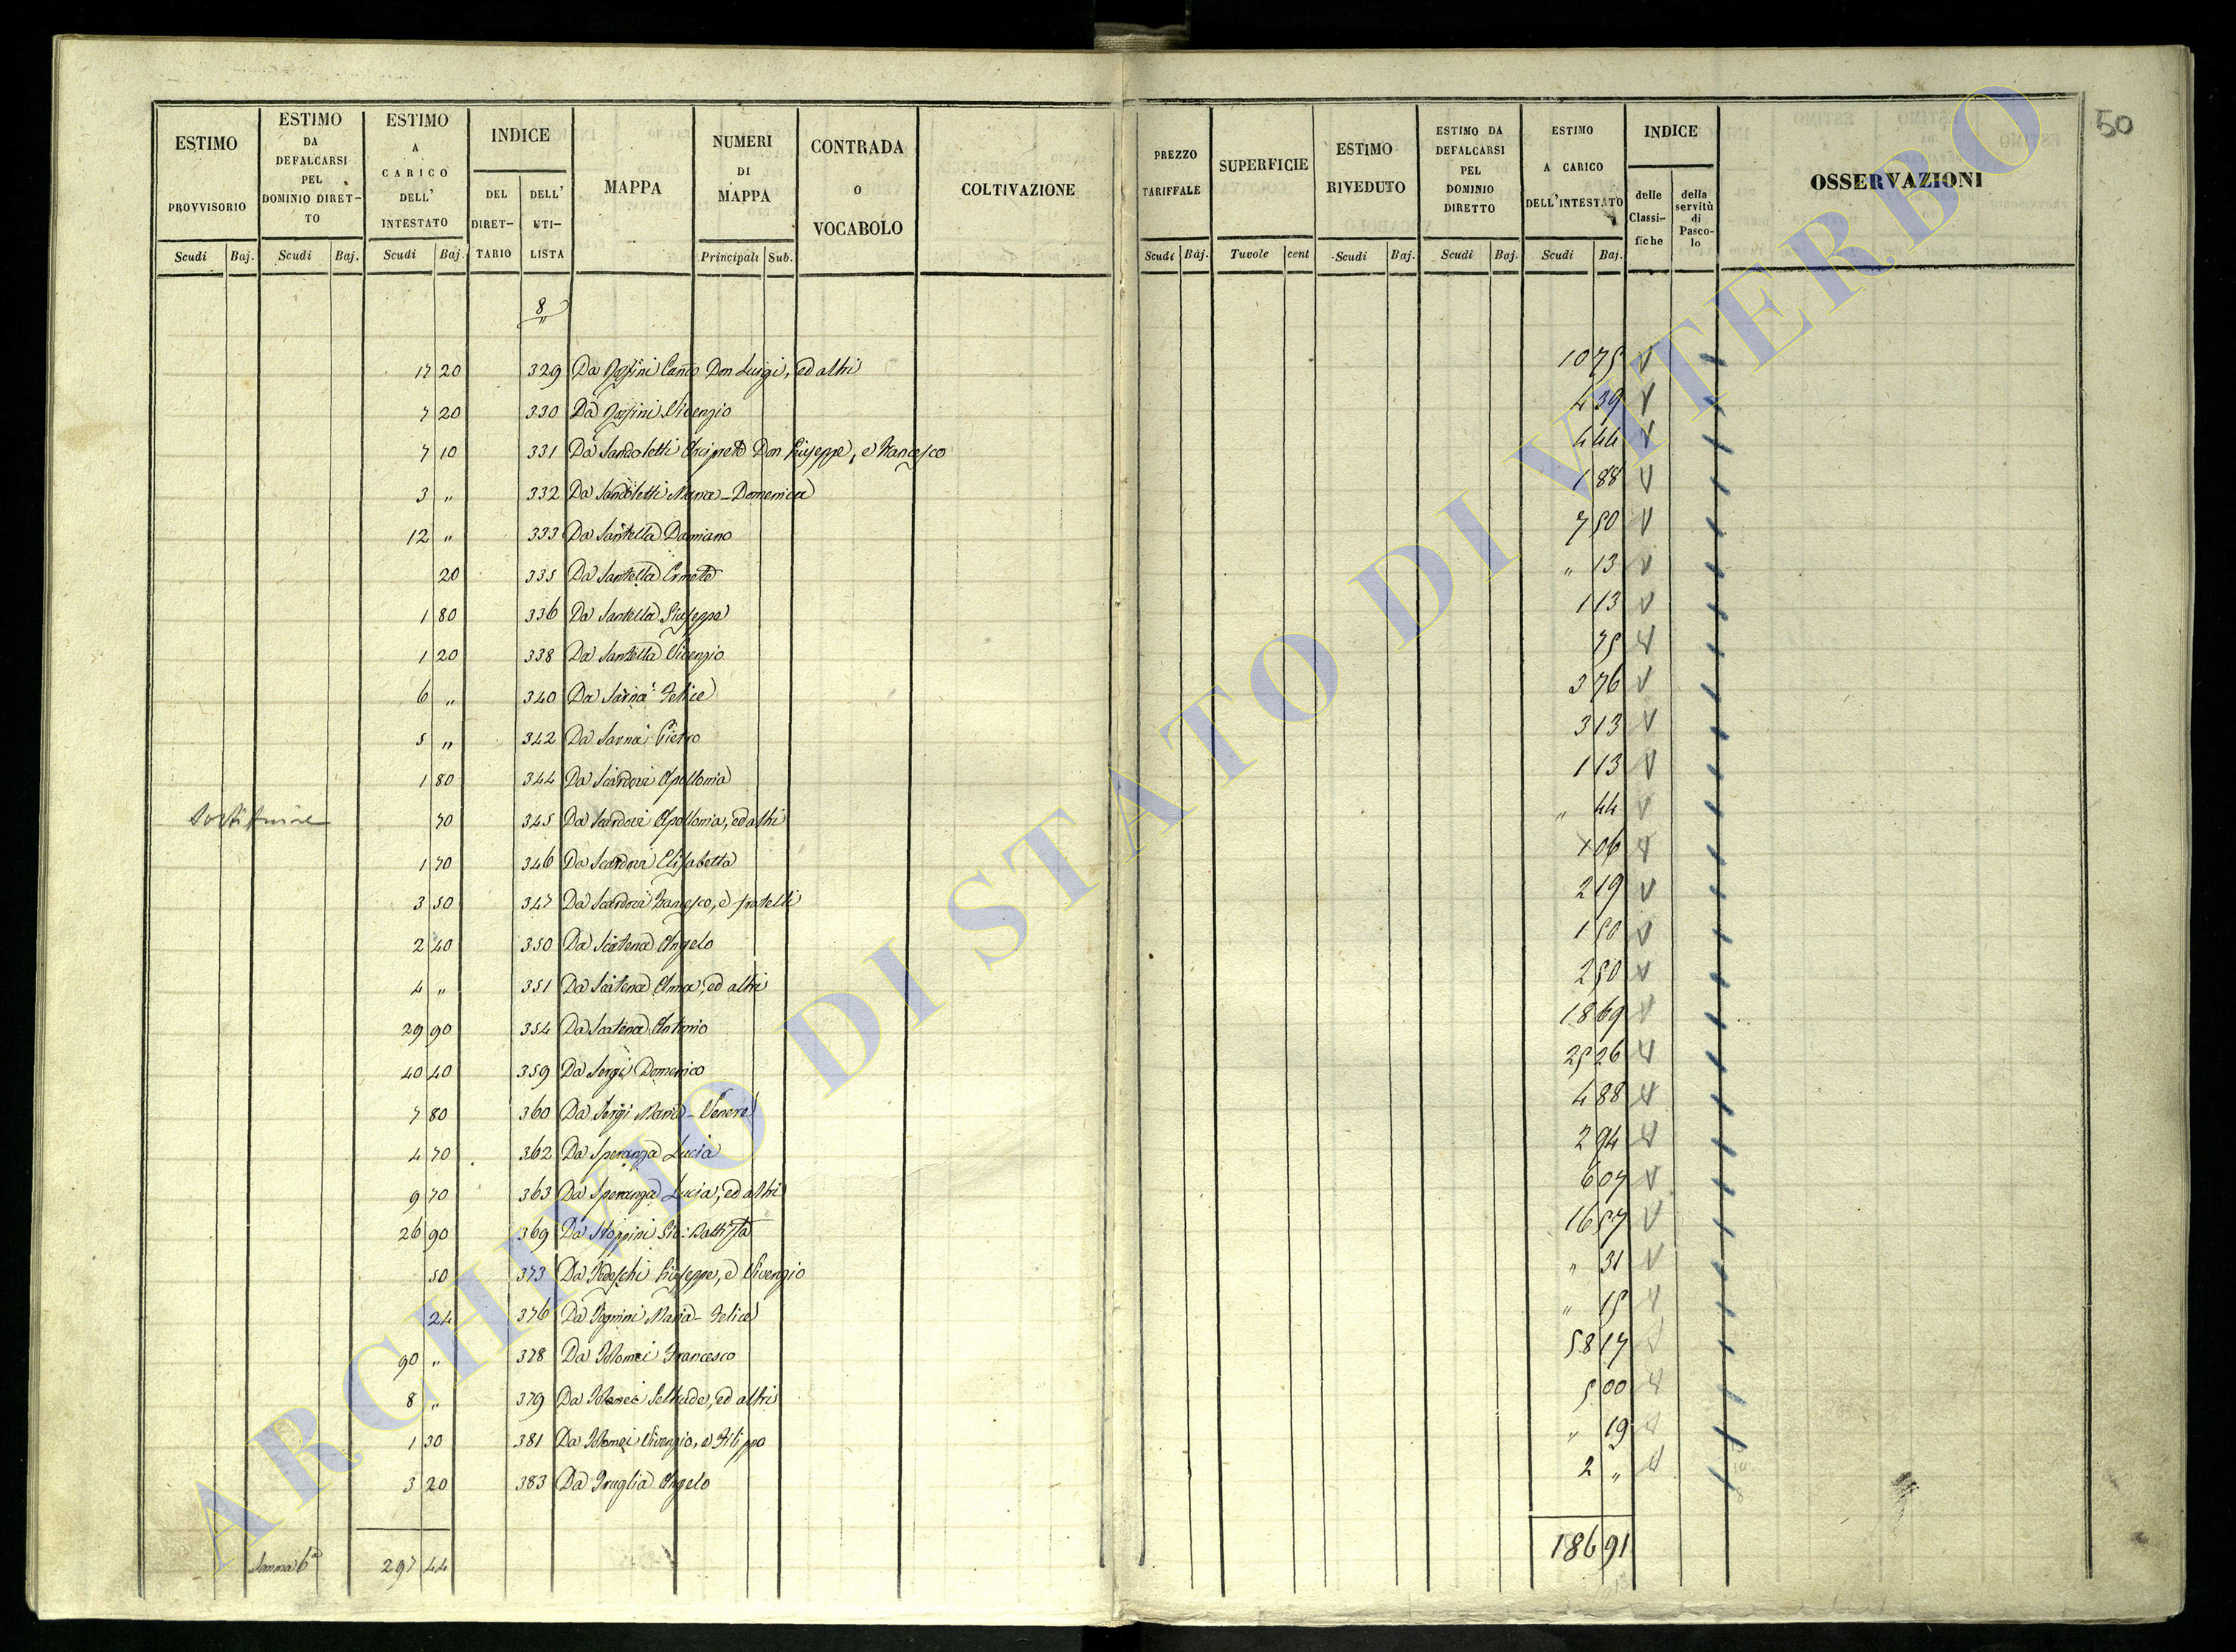 50
ESTIMO PROVVISORIO
ESTIMO DA DEFALCARSI PEL DOMINIO DIRET-TO
ESTIMO A CARICO DELL' INTESTATO
INDICE
DEL DIRET-TARIO
DELL' UTI-LISTA
MAPPA
NUMERI DI MAPPA
CONTRADA o VOCABOLO
COLTIVAZIONE
PREZZO TARIFFALE
SUPERFICIE
ESTIMO RIVEDUTO
ESTIMO DA DEFALCARSI PEL DOMINIO DIRETTO
ESTIMO A CARICO DELL'INTESTATO
INDICE
delle Classi-fiche
della servitù di Pasco-lo
OSSERVAZIONI
Scudi Baj. Scudi Baj. Scudi Baj. Principali Sub. Scudi Baj. Tavole cent Scudi Baj. Scudi Baj. Scudi Baj.
8 "
17 20 329 Da Don Luigi, ed altri 10 75
7 20 330 Da Vivenzio 4 39
7 10 331 Da Sandoletti Arciprete Don Giuseppe, e Francesco 4 44
3 " 332 Da Sandoletti Maria-Domenica 1 88
12 " 333 Da Santella Damiano 7 50
20 335 Da Santella Ermete " 13
1 80 336 Da Santella Giuseppe 1 13
1 20 338 Da Santella Vivenzio 75
6 " 340 Da Sarna' Felice 3 76
5 " 342 Da Sarna' Pietro 3 13
1 80 344 Da Scardovi Apollonia 1 13
70 345 Da Scardovi Apollonia, ed altri " 44
1 70 346 Da Scardovi Elisabetta 1 06
3 50 347 Da Scardovi Francesco, e fratelli 2 19
2 40 350 Da Scatena Angelo 1 50
4 " 351 Da Scatena Anna, ed altri 2 50
29 90 354 Da Scatena Antonio 18 69
40 40 359 Da Sergi Domenico 25 26
7 80 360 Da Sergi Maria-Venere 4 88
4 70 362 Da Speranza Lucia 2 94
9 70 363 Da Speranza Lucia, ed altri 6 07
26 90 369 Da Stoppini Gio: Battista 16 57
50 373 Da Tedeschi Giuseppe, e Vivenzio " 31
24 376 Da Tognini Maria-Felice " 15
90 " 378 Da Tolomei Francesco 58 17
8 " 379 Da Tolomei Geltrude, ed altri 5 00
1 30 381 Da Tolomei Vivenzio, e Filippo " 19
3 20 383 Da Truglia Angelo 2 "
Somma 6a 297 44 186 91
ARCHIVIO DI STATO DI VITERBO